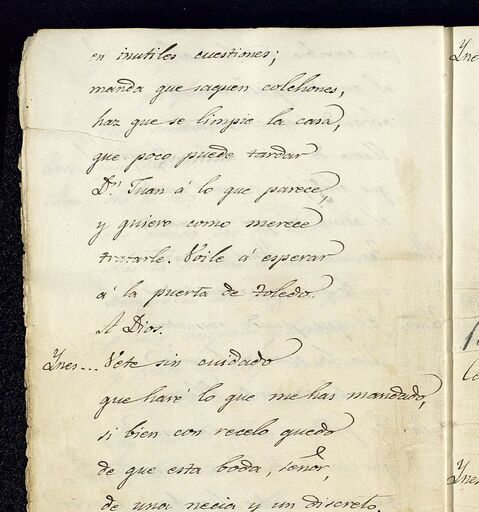 en inutiles cuestiones;
manda que saquen colchones,
haz que se limpie la casa,
que poco puede tardar
Dn Juan á lo que parece,
y quiero como merece
tratarle. Voile á esperar
á la puerta de Toledo.
A Dios.
Ynes... Vete sin cuidado
que haré lo que me has mandado,
si bien con recelo quedo
de que esta boda, señor,
de una necia y un discreto.
Ynes
Ynes